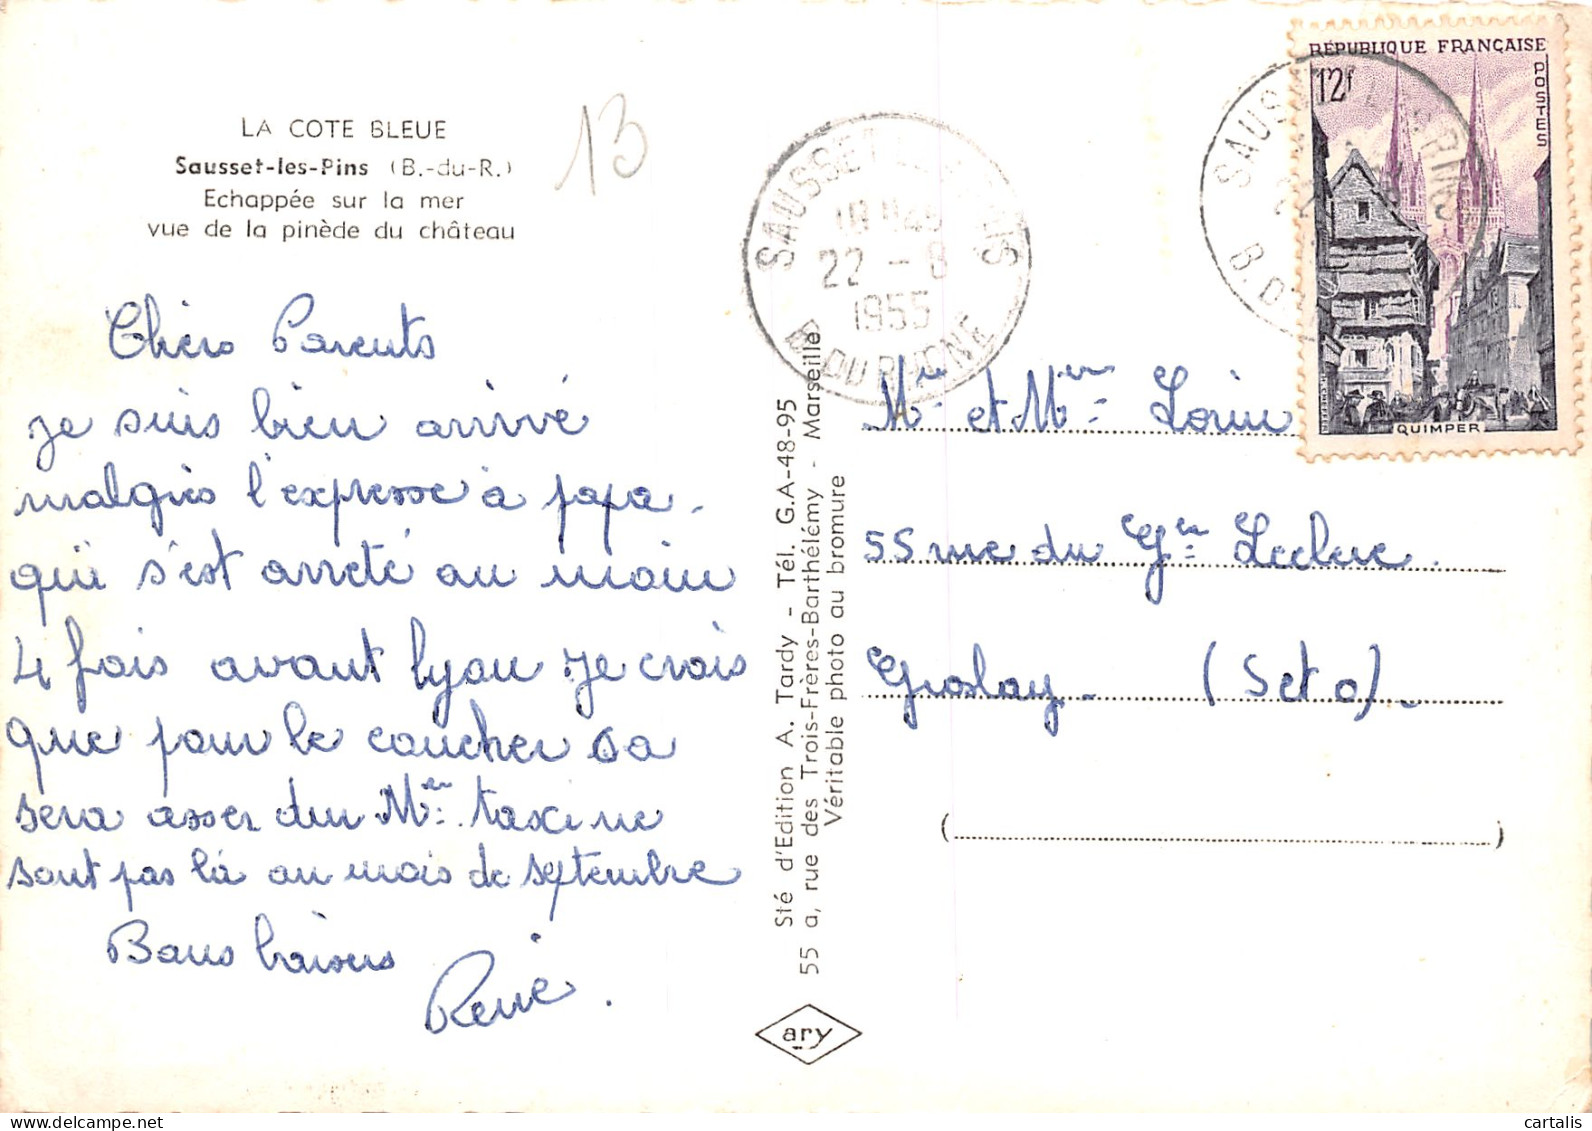 LA COTE BLEUE
Sausset-les-Pins (B.-du-R.)
Echappée sur la mer
vue de la pinède du château
13
Chers Parents
je suis bien arrivé
malgrès l'expresse à papa.
qui s'est arreté au moin
4 fois avant lyon je crois
que pour le coucher sa
sera assez dur Mer taxi ne
sont pas là au mois de septembre
Bons baisers
René.
Sté d'Edition A. Tardy - Tél. G.A-48-95
55 a, rue des Trois-Frères-Barthélémy - Marseille
Véritable photo au bromure
ary
SAUSSET LES PINS
18 H45
22 - 8
1955
B. DU RHONE
RÉPUBLIQUE FRANÇAISE
12f
POSTES
QUIMPER
Mr et Mme Lorin
55 rue du Gen Leclerc.
Groslay. (S et O).
( )
cartalis